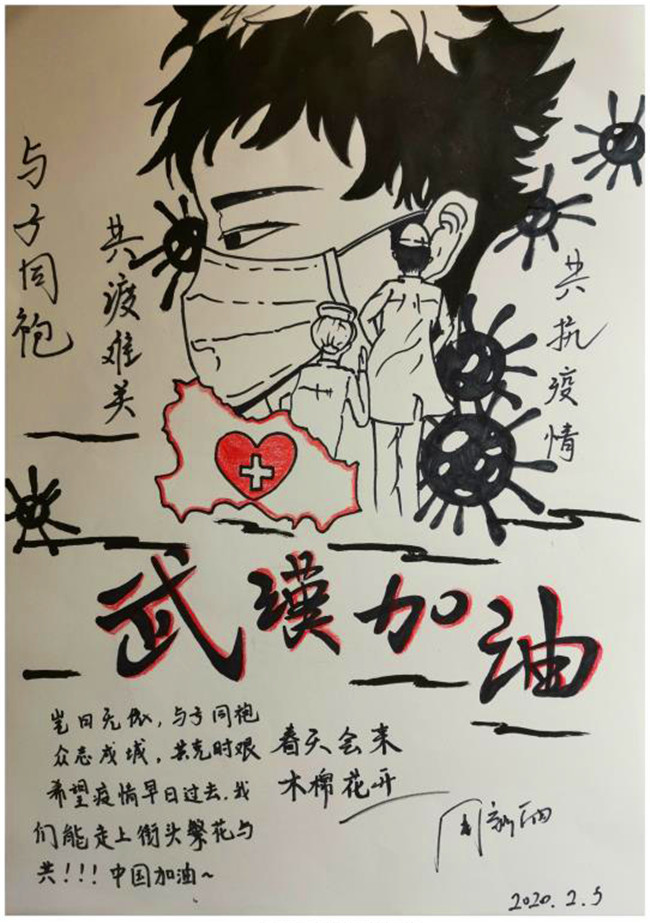 与子同袍
共渡难关
共抗疫情
武漢加油
岂曰无衣，与子同袍
众志成城，共克时艰
希望疫情早日过去，我
们能走上街头繁花与
共！！！中国加油~
春天会来
木棉花开
2020.2.5